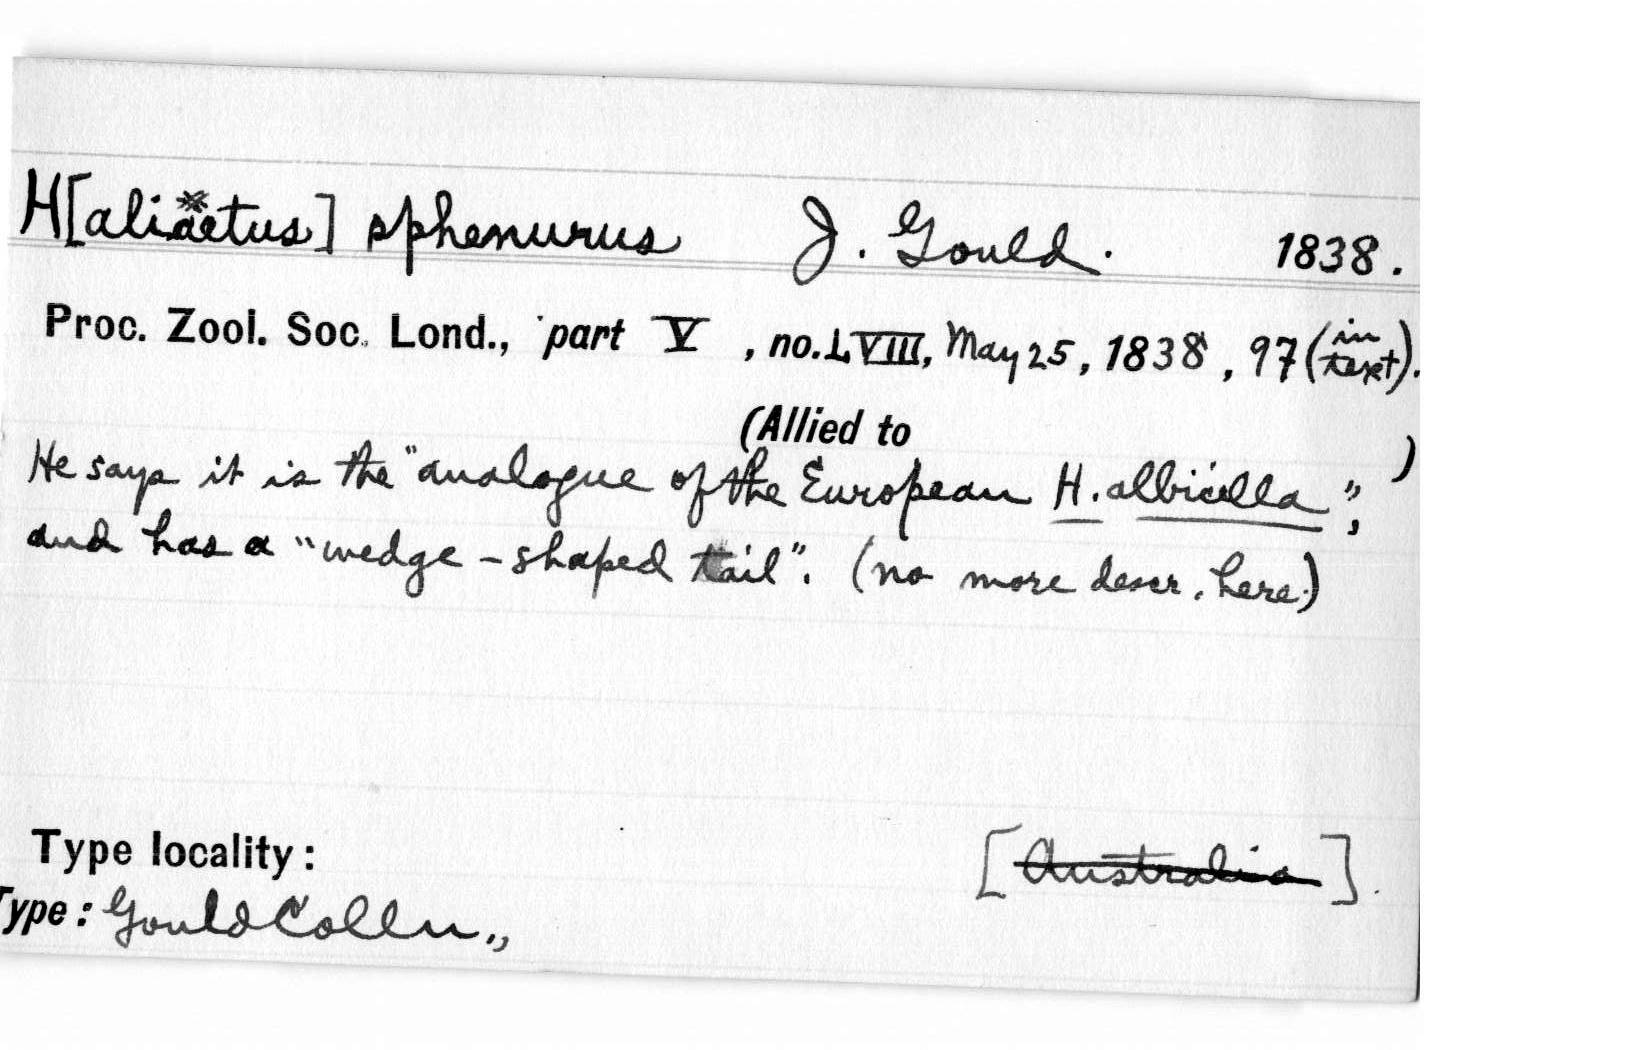 H[aliaetus] sphenurus J. Gould. 1838.
Proc. Zool. Soc. Lond., part V, no. LVIII, May 25, 1838, 97 (in text).
(Allied to )
He says it is the "analogue of the European H. albicilla",
and has a "wedge-shaped tail". (no more descr. here.)
Type locality: [Australia].
Type: Gould Colln.,